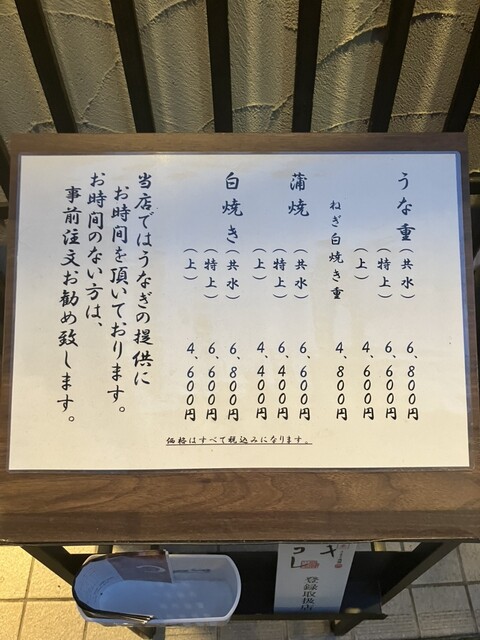 うな重（共水） 6、800円
（特上） 6、600円
（上） 4、600円
ねぎ白焼き重 4、800円
蒲焼（共水） 6、600円
（特上） 6、400円
（上） 4、400円
白焼き（共水） 6、800円
（特上） 6、600円
（上） 4、600円
価格はすべて税込みになります。
当店ではうなぎの提供に
お時間を頂いております。
お時間のない方は、
事前注文お勧め致します。
登録取扱店